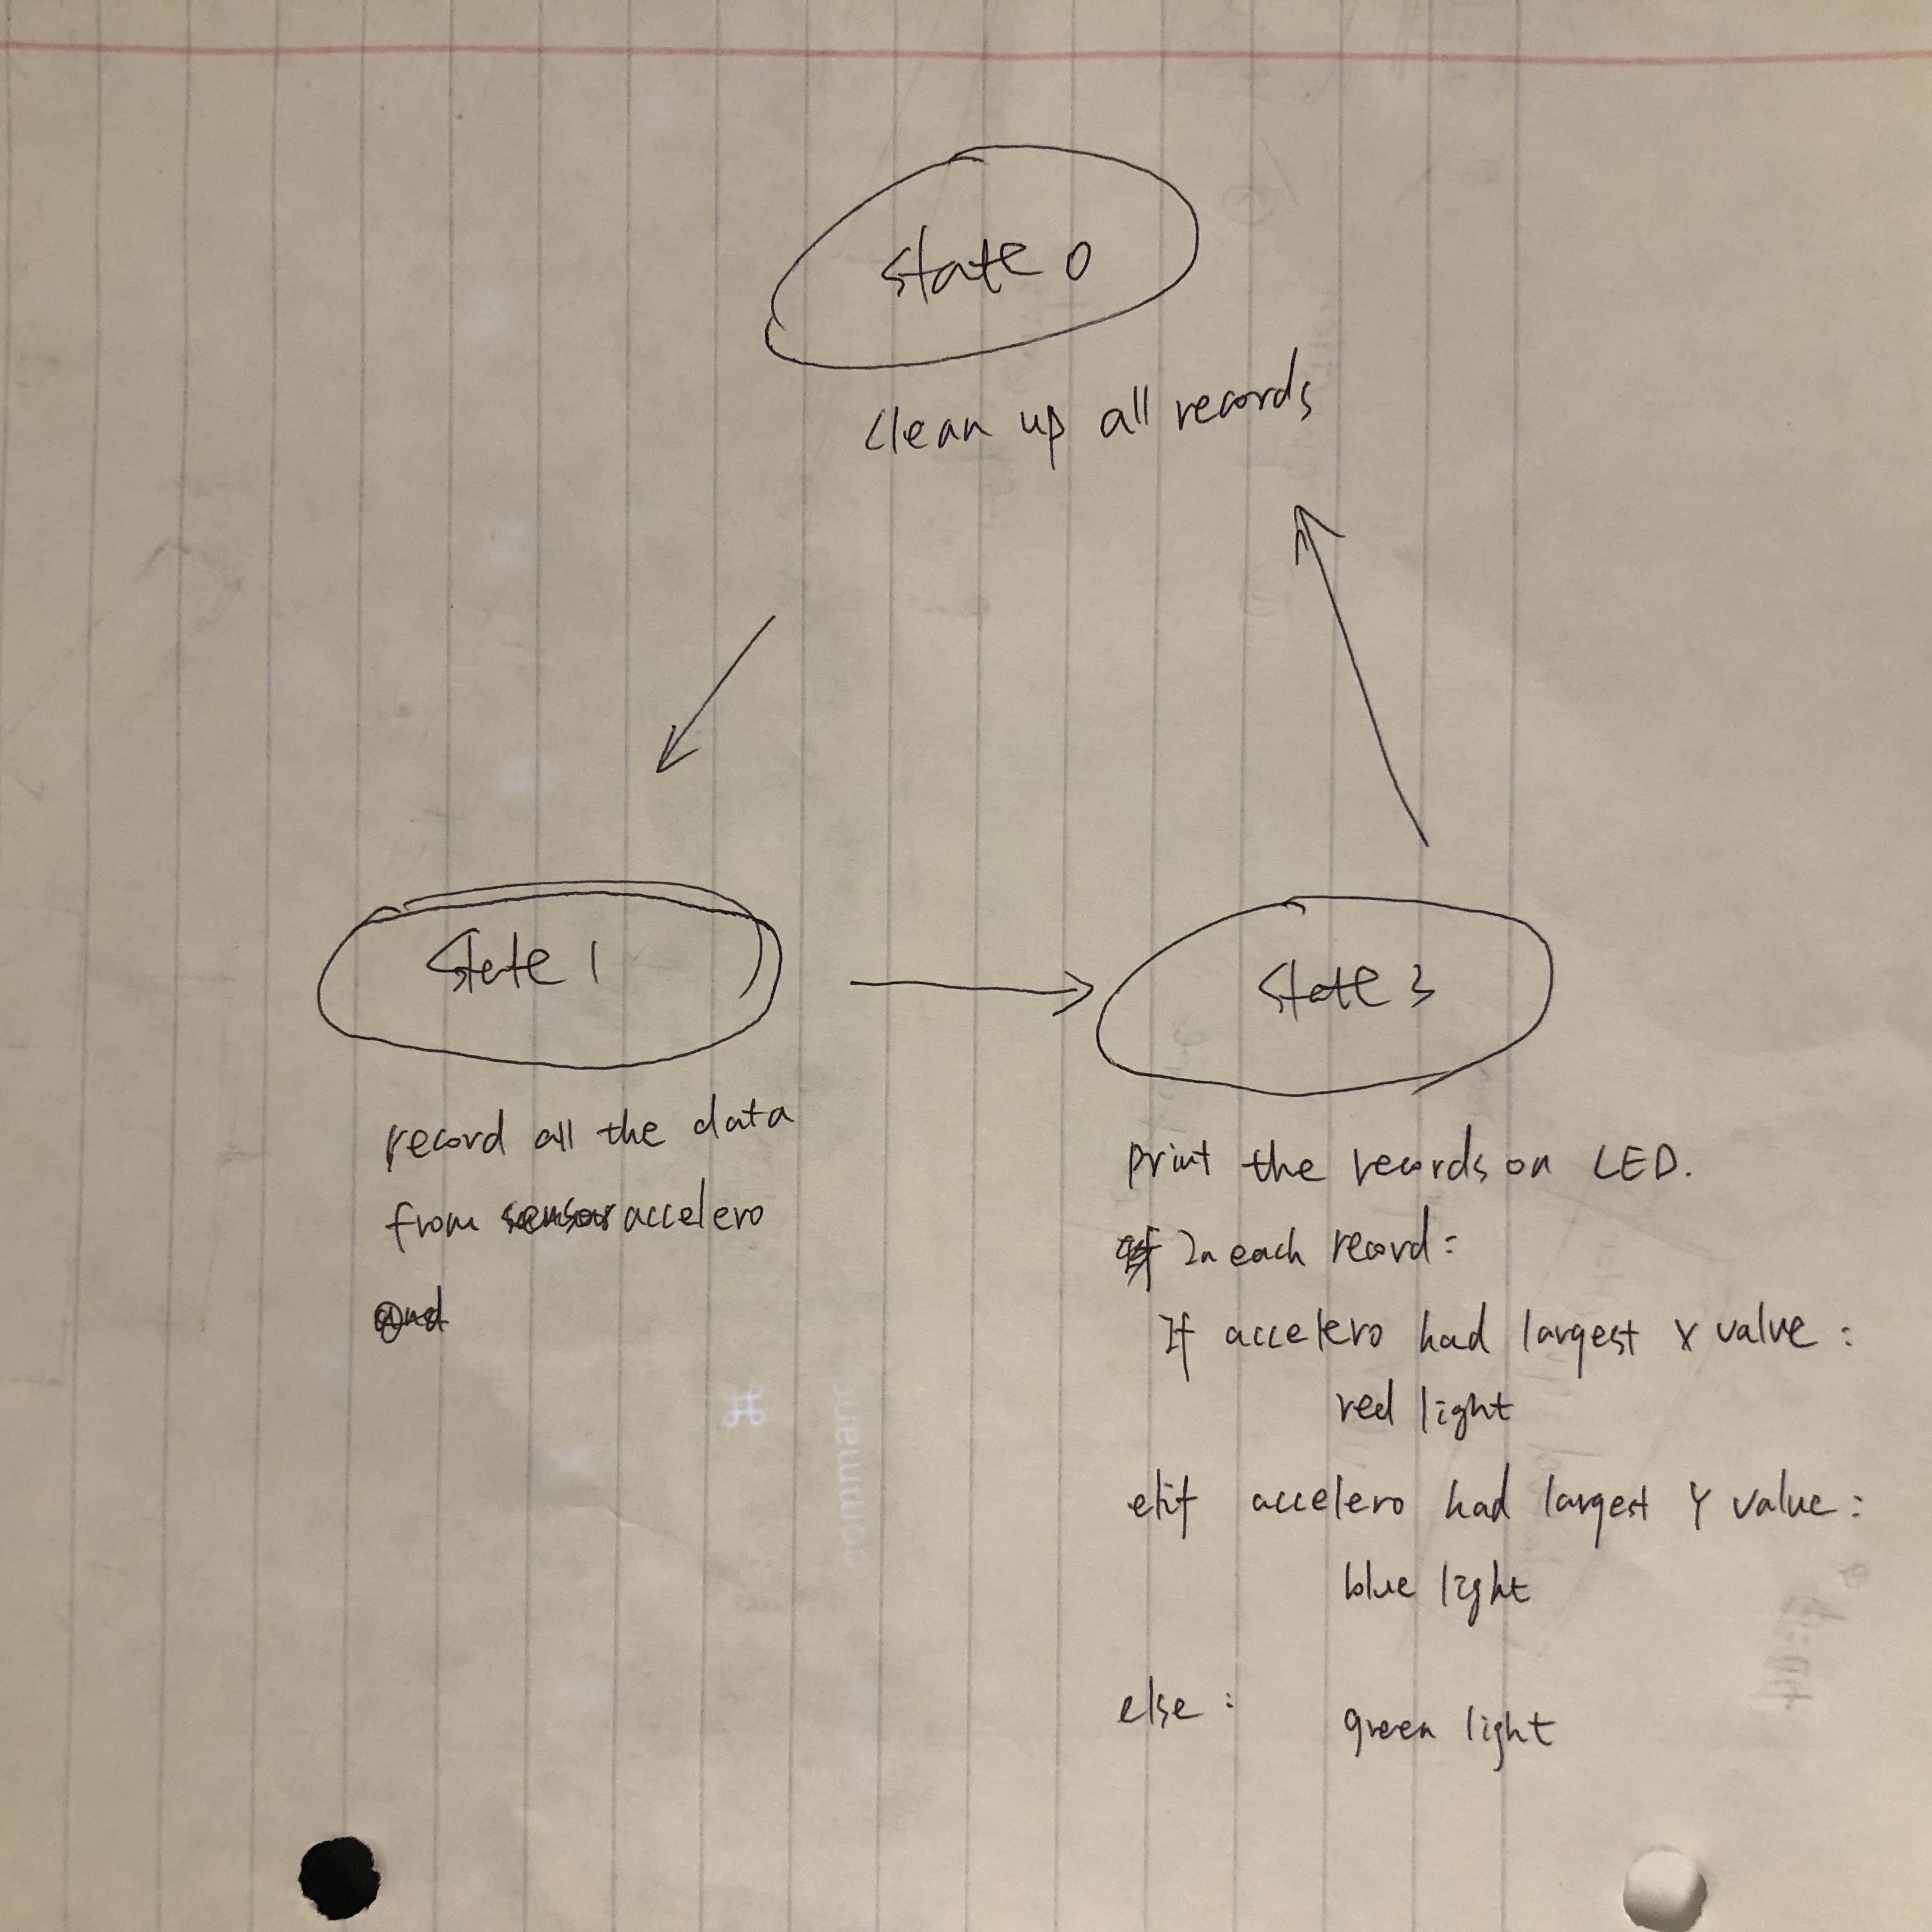 state 0
clean up all records
state 1
record all the data
from accelero
state 3
print the records on LED.
In each record:
If accelero had largest x value:
red light
elif accelero had largest Y value:
blue light
else:
green light
command